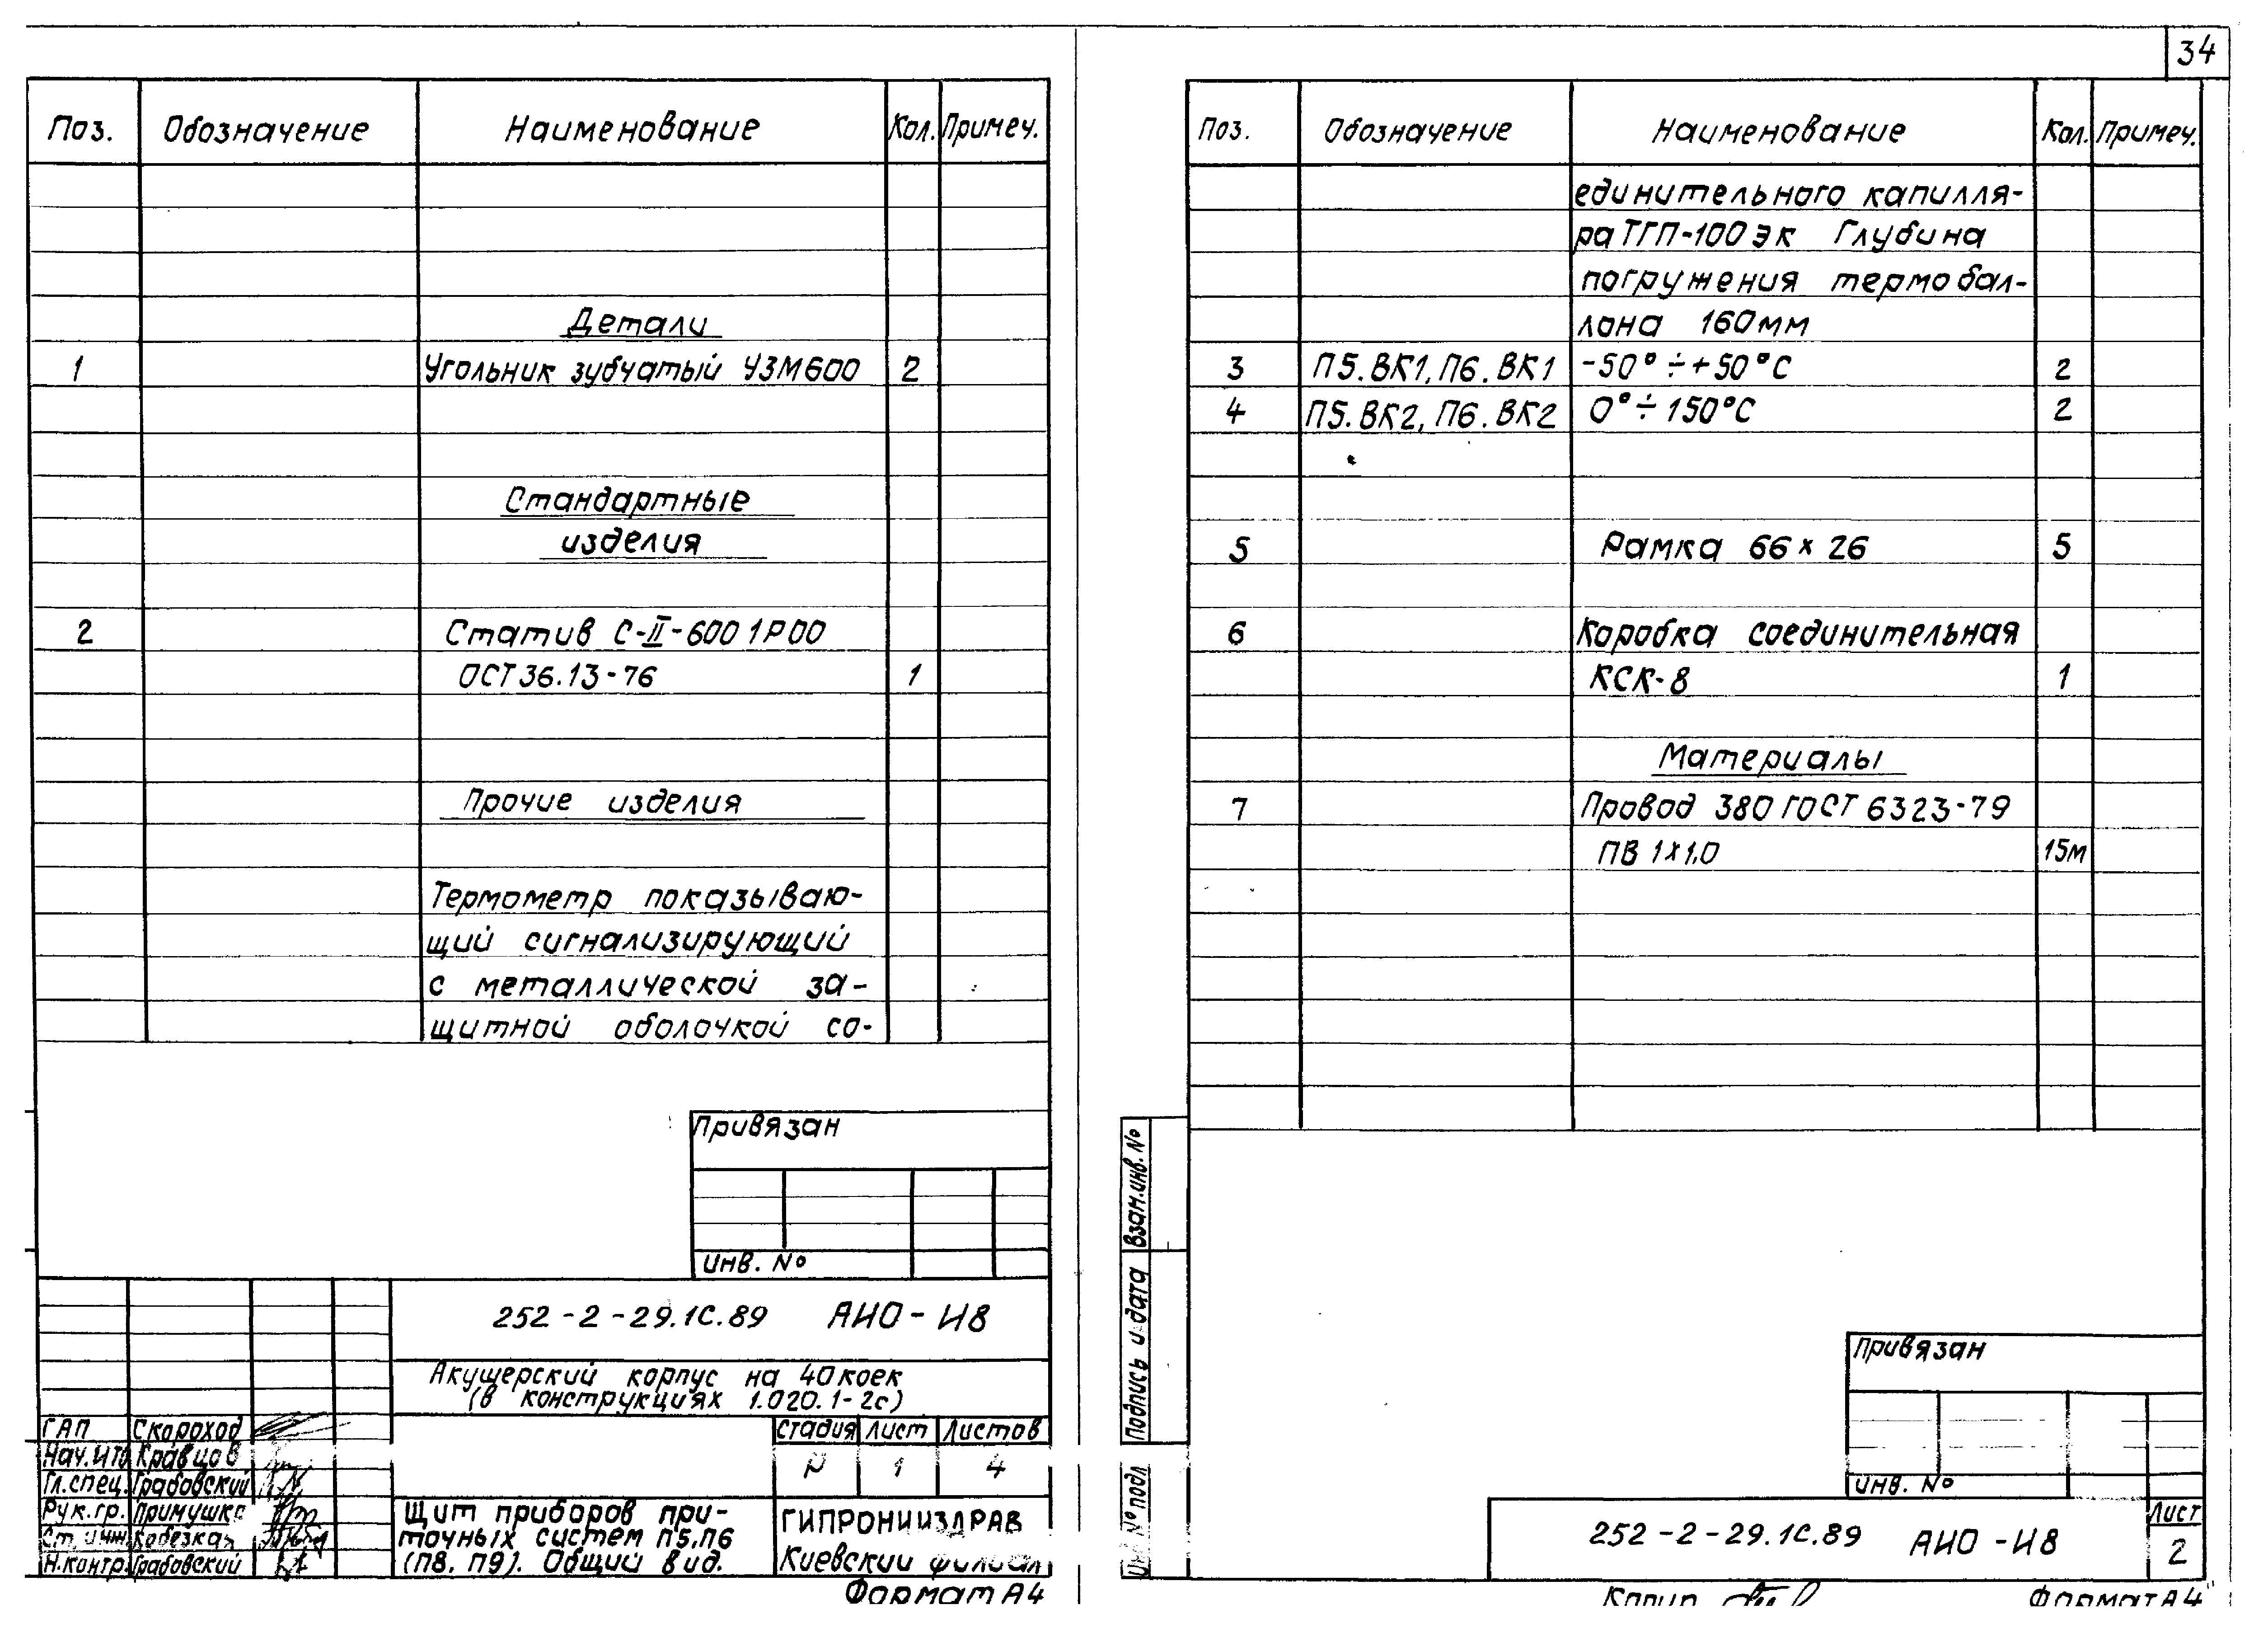 34
Поз. Обозначение Наименование Кол. Примеч.
Детали
1 Угольник зубчатый УЗМ600 2
Стандартные
изделия
2 Статив С-II-600 1Р00
ОСТ 36.13-76 1
Прочие изделия
Термометр показываю-
щий сигнализирующий
с металлической за-
щитной оболочкой со-
Привязан
Инв. №
252-2-29.1С.89 АИО-И8
Акушерский корпус на 40 коек
(в конструкциях 1.020.1-2с)
ГАП Скороход
Нач.ИТО Кравцов
Гл.спец. Грабовский
Рук.гр. Примушко
Ст.инж. Кобезкая
Н.контр. Грабовский
Стадия Лист Листов
Р 1 4
Щит приборов при-
точных систем П5,П6
(П8, П9). Общий вид.
ГИПРОНИИЗДРАВ
Киевский филиал
Формат А4
Поз. Обозначение Наименование Кол. Примеч.
единительного капилля-
ра ТГП-100эк Глубина
погружения термобал-
лона 160мм
3 П5.ВК1, П6.ВК1 -50°÷+50°С 2
4 П5.ВК2, П6.ВК2 0°÷150°С 2
5 Рамка 66×26 5
6 Коробка соединительная
КСК-8 1
Материалы
7 Провод 380 ГОСТ 6323-79
ПВ 1×1,0 15м
Взам.инв. №
Подпись и дата
Инв № подл
Привязан
Инв. №
252-2-29.1С.89 АИО-И8
Лист
2
Копир
Формат А4